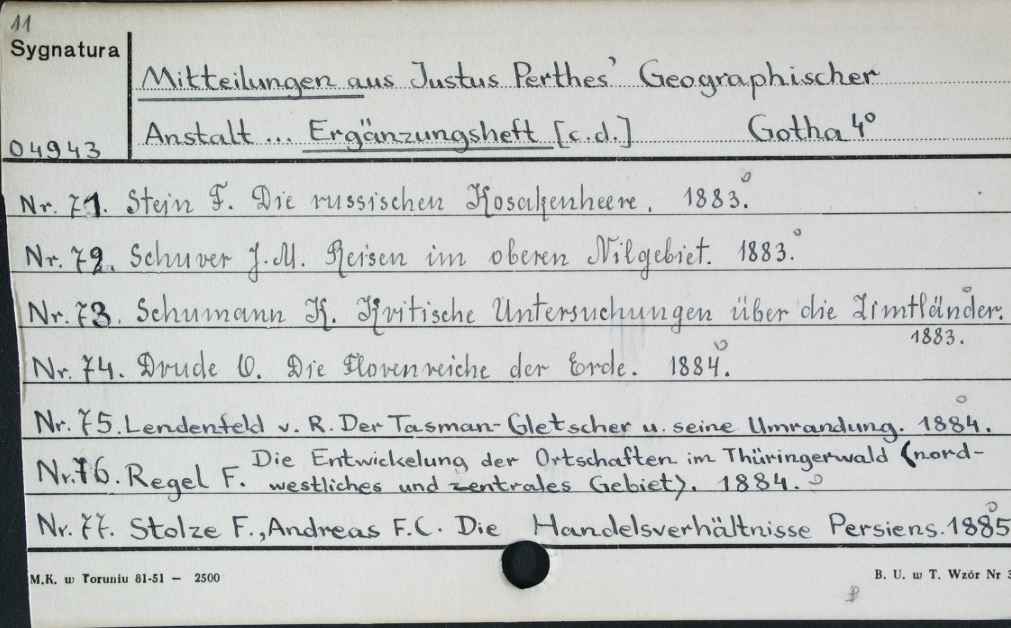 11
Sygnatura
Mitteilungen aus Justus Perthes' Geographischer
Anstalt ... Ergänzungsheft [c.d.] Gotha 4°
04943
Nr. 71. Stein F. Die russischen Kosakenheere. 1883.
Nr. 72. Schuver J.M. Reisen im oberen Nilgebiet. 1883.
Nr. 73. Schumann K. Kritische Untersuchungen über die Zimtländer.
1883.
Nr. 74. Drude O. Die Florenreiche der Erde. 1884.
Nr. 75. Lendenfeld v. R. Der Tasman-Gletscher u. seine Umrandung. 1884.
Nr. 76. Regel F. Die Entwickelung der Ortschaften im Thüringerwald (nord-
westliches und zentrales Gebiet). 1884.
Nr. 77. Stolze F., Andreas F.C. Die Handelsverhältnisse Persiens. 1885
M.K. w Toruniu 81-51 — 2500
B. U. w T. Wzór Nr 3